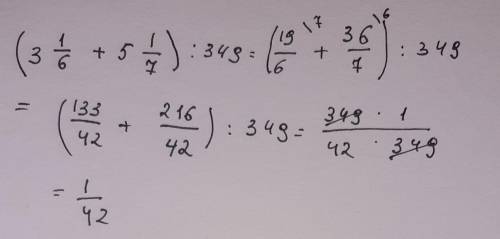 (3 1/6 + 5 1/7) : 349 = (19/6 \7 + 36/7 \6) : 349
= (133/42 + 216/42) : 349 = 349 · 1 / 42 · 349
= 1/42